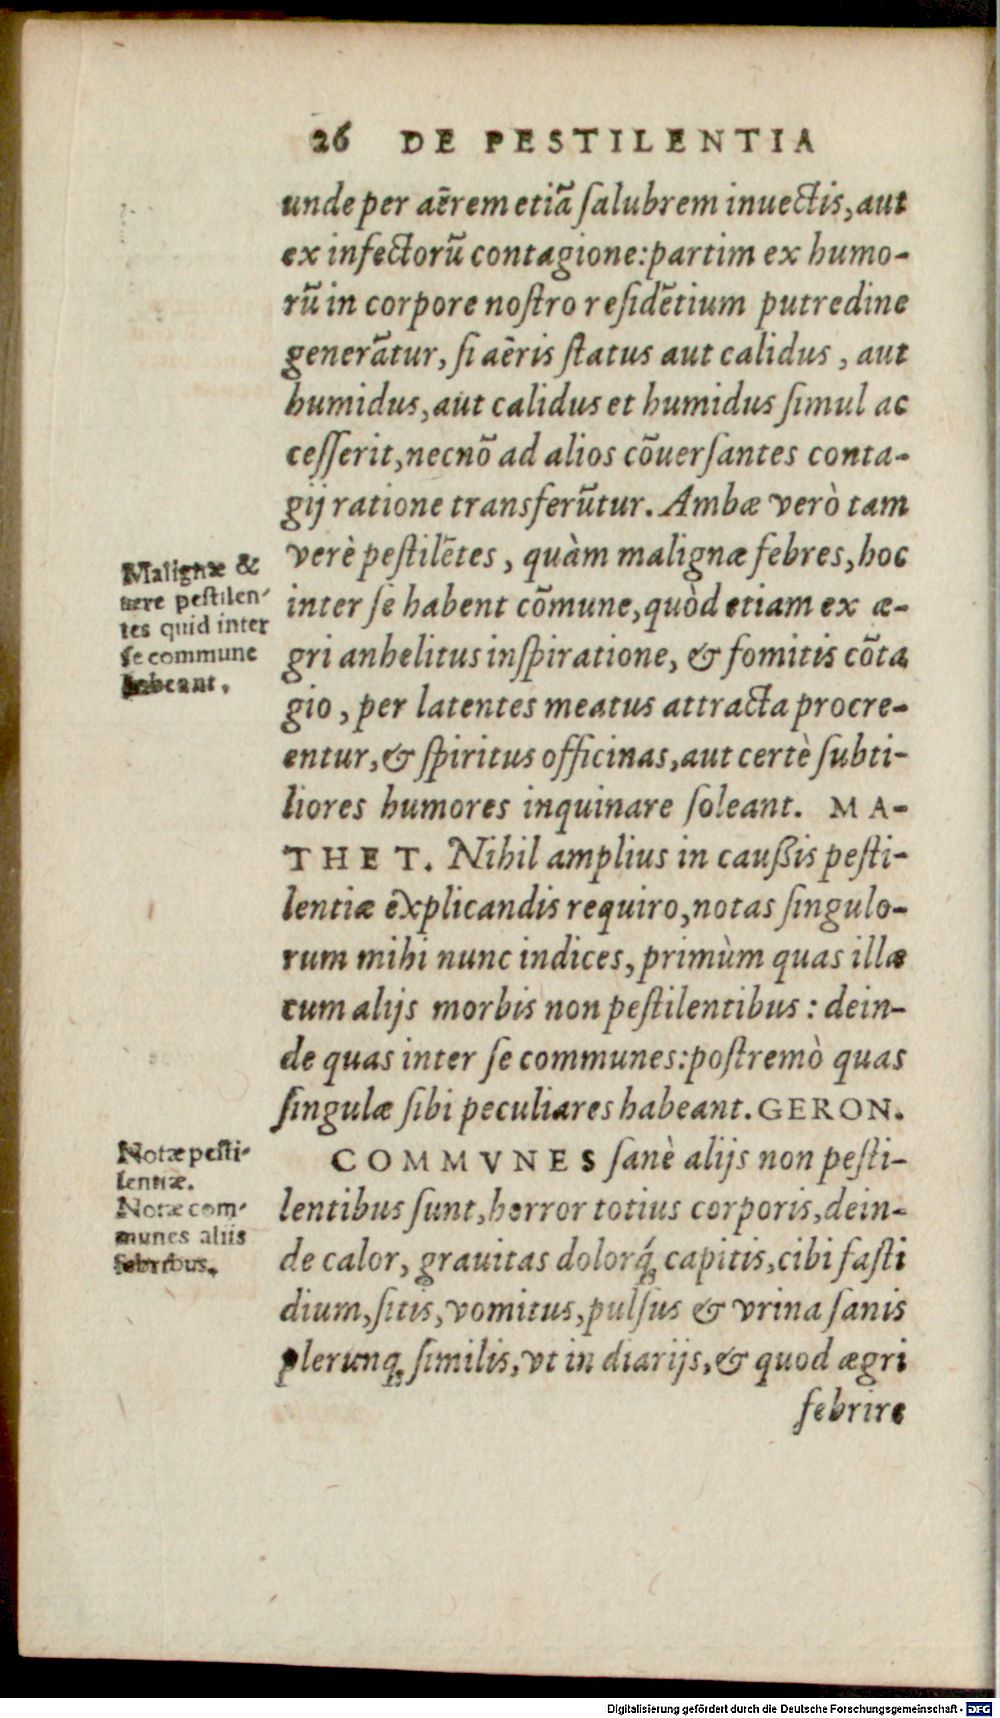 26 DE PESTILENTIA
unde per aërem etiã ſalubrem inuectis, aut
ex infectorũ contagione: partim ex humo-
rũ in corpore noſtro reſidẽtium putredine
generãtur, ſi aëris ſtatus aut calidus, aut
humidus, aut calidus et humidus ſimul ac
ceſſerit, necnõ ad alios cõuerſantes conta-
gij ratione transferũtur. Ambæ verò tam
verè peſtilẽtes, quàm malignæ febres, hoc
inter ſe habent cõmune, quòd etiam ex æ-
gri anhelitus inſpiratione, & fomitis cõta
gio, per latentes meatus attracta procre-
entur, & ſpiritus officinas, aut certè ſubti-
liores humores inquinare ſoleant. MA-
THET. Nihil amplius in cauſsis peſti-
lentiæ explicandis requiro, notas ſingulo-
rum mihi nunc indices, primùm quas illæ
cum alijs morbis non peſtilentibus: dein-
de quas inter ſe communes: poſtremò quas
ſingulæ ſibi peculiares habeant. GERON.
COMMVNES ſanè alijs non peſti-
lentibus ſunt, horror totius corporis, dein-
de calor, grauitas dolorq́; capitis, cibi faſti
dium, ſitis, vomitus, pulſus & vrina ſanis
plerunq; ſimilis, vt in diarijs, & quod ægri
febrire
Malignæ &
uere peſtilen-
tes quid inter
ſe commune
habeant.
Notæ peſti-
lentiæ.
Notæ com-
munes aliis
febribus.
Digitalisierung gefördert durch die Deutsche Forschungsgemeinschaft - DFG